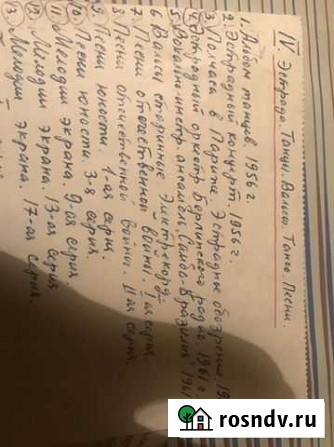 IV. Эстрада. Танцы. Вальсы. Танго. Песни.
1. Альбом танцев. 1956 г.
2. Эстрадный концерт. 1956 г.
3. Vо́лчаса в Париже. Эстрадные обозрение 19
4. Эстрадный оркестр Берлинского радио. 1961 г.
5. Вокально-инстр. ансамбль "Самбо-Бразилия" 1961
6 Вальсы старинные Электрекорд
7. Песни отечественной войны. I-ая серия.
8. Песни отечественной войны. II-ая серия.
9. Песни юности. 1-ая серия.
10. Песни юности. 3-я серия.
11. Мелодии экрана. 9-ая серия.
12. Мелодии экрана. 13-ая серия.
13. Мелодии экрана. 17-ая серия.
rosndv.ru